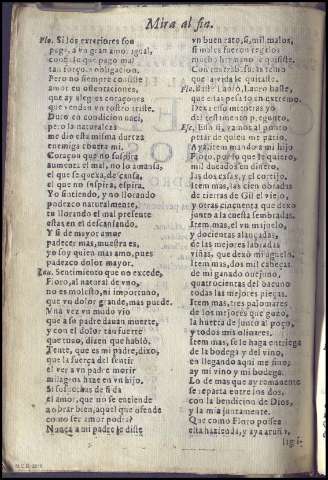 Mira al fin.
Flo. Si los exteriores son
paga, a vn gran amor igual,
confiesso que pago mal
tan forçosa obligacion.
Pero no siempre consiste
amor en ostentaciones,
que ay alegres coraçones
que venden vn rostro triste.
Duro en condicion naci,
pero la naturaleza
me dio essa misma dureza
enemiga contra mi.
Coraçon que no suspira
aumenta el mal, no lo amansa,
el que se quexa, descansa,
el que no suspira, espira.
Yo sintiendo, y no llorando
padezco naturalmente,
tu llorando el mal presente
estas en el descansando.
Y si de mayor amor
padecer mas, muestra es,
yo soy quien mas amo, pues
padezco dolor mayor.
Lau. Sentimiento que no excede,
Floro, al natural de vno,
no es molesto, ni importuno,
que vn dolor grande, mas puede.
Vna vez vn mudo vio
que a su padre dauan muerte,
y con el dolor tan fuerte
que tuuo, dizen que habló,
Tente, que es mi padre, dixo,
que la fuerça del sentir
el ver a vn padre morir
milagros haze en vn hijo.
el amor, que no se entiende
a obrar bien, aquel que ofende
como no ser amor podrá?
Nunca a mi padre le diste
vn buen rato, si, mil malos,
si males fueron regalos
mucho hermano le quisiste.
que ayuda le quitaste.
que estas puesto en extremo.
Dexa esso mientras yo
del testamento pregunto.
Esc. En fin, vamos al punto
pesar de quien me parió.
A ya, item mando a mi hijo
Floro, porque le quiero,
mil ducados en dinero,
las dos casas, y el cortijo.
Item mas, las cien obradas
de tierras de Gil el viejo,
y otras cinquenta que dexo
junto a la cuesta sembradas.
Item mas, el vn majuelo,
y docientas alançadas,
de las mejores labradas
viñas, que dexó mi aguelo.
Item mas, dos mil cabeças
de mi ganado ouejuno,
quatrocientas del bacuno
todas las mejores pieças.
Item mas, tres palomares
de los mejores que gozo,
la huerta de junto al poço,
y todos mis oliuares.
Item mas, se le haga entrega
de la bodega y del vino,
en llegando aqui me fino;
ay mi vino y mi bodega.
Lo de mas que ay romanente
se reparta entre los dos,
con la bendicion de Dios,
y la mia juntamente.
Que como Floro possea
esta hazienda, y aya